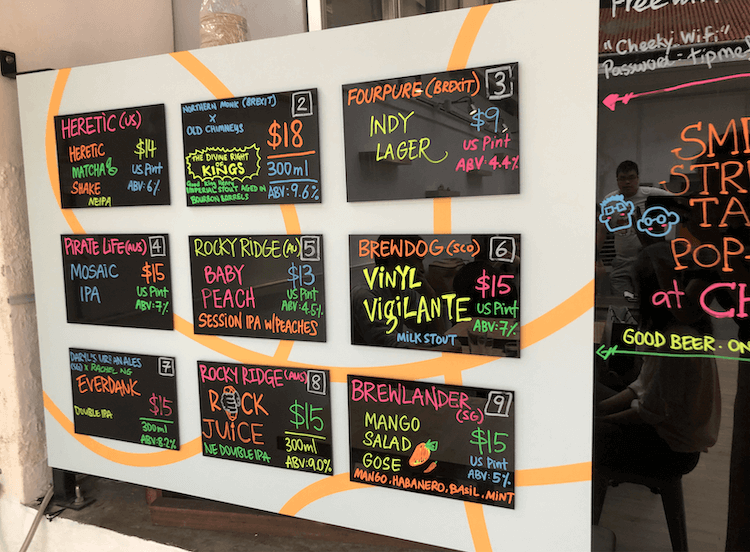 HERETIC (US)
HERETIC
MATCHA
SHAKE
NEIPA
$14
US Pint
ABV: 6%
NORTHERN MONK (BREXIT)
X
OLD CHIMNEYS
2
THE DIVINE RIGHT
OF
KINGS
Good King Henry
IMPERIAL STOUT AGED IN
BOURBON BARRELS
$18
300ml
ABV: 9.6%
FOURPURE (BREXIT)
3
INDY
LAGER
$9
US Pint
ABV: 4.4%
PIRATE LIFE (AUS)
4
MOSAIC
IPA
$15
US Pint
ABV: 7%
ROCKY RIDGE (AU)
5
BABY
PEACH
$13
US Pint
ABV: 4.5%
SESSION IPA W/PEACHES
BREWDOG (SCO)
6
VINYL
VIGILANTE
MILK STOUT
$15
US Pint
ABV: 7%
DARYL'S URBAN ALES
(SG) X RACHEL NG
7
EVERDANK
DOUBLE IPA
$15
300ml
ABV: 8.2%
ROCKY RIDGE (AUS)
8
ROCK
JUICE
NE DOUBLE IPA
$15
300ml
ABV: 9.0%
BREWLANDER
(SG)
9
MANGO
SALAD
GOSE
$15
US Pint
ABV: 5%
MANGO, HABANERO, BASIL, MINT
"Cheeky Wifi"
Password: tipme
POP-
at CH
GOOD BEER. ON